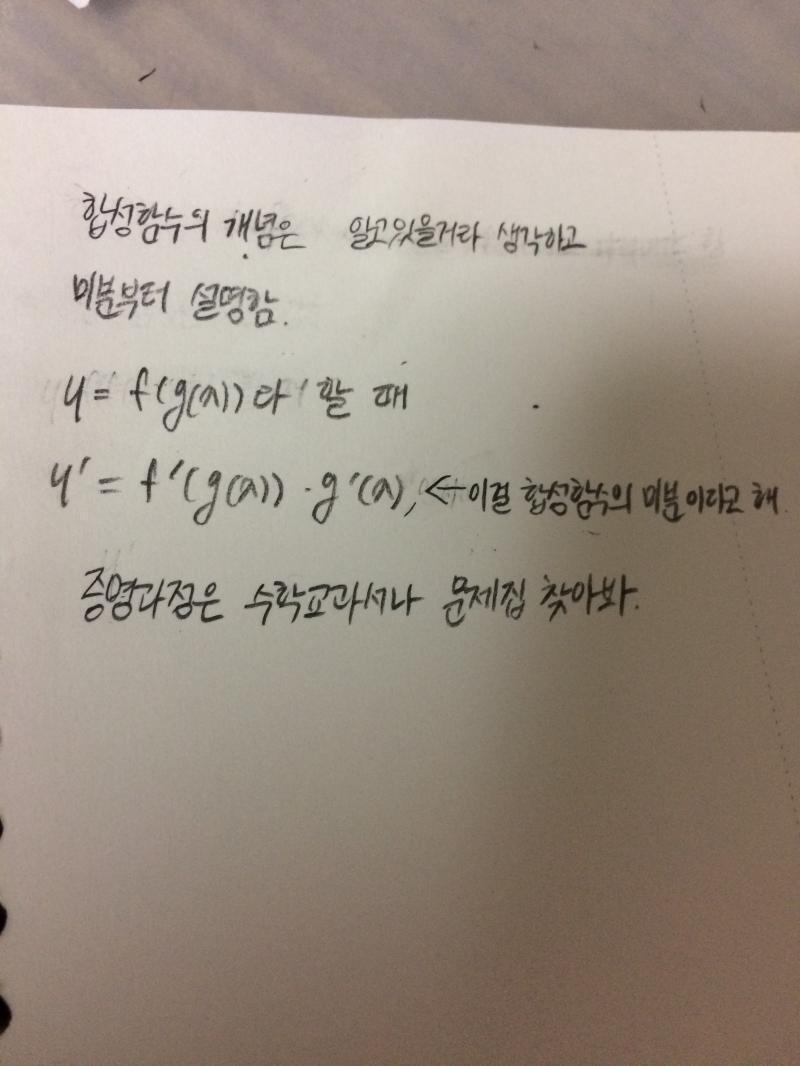 합성함수의 개념은 알고있을거라 생각하고
미분부터 설명함.
y = f(g(x)) 다 할 때
y' = f'(g(x)) · g'(x), ← 이걸 합성함수의 미분이다고 해.
증명과정은 수학교과서나 문제집 찾아봐.